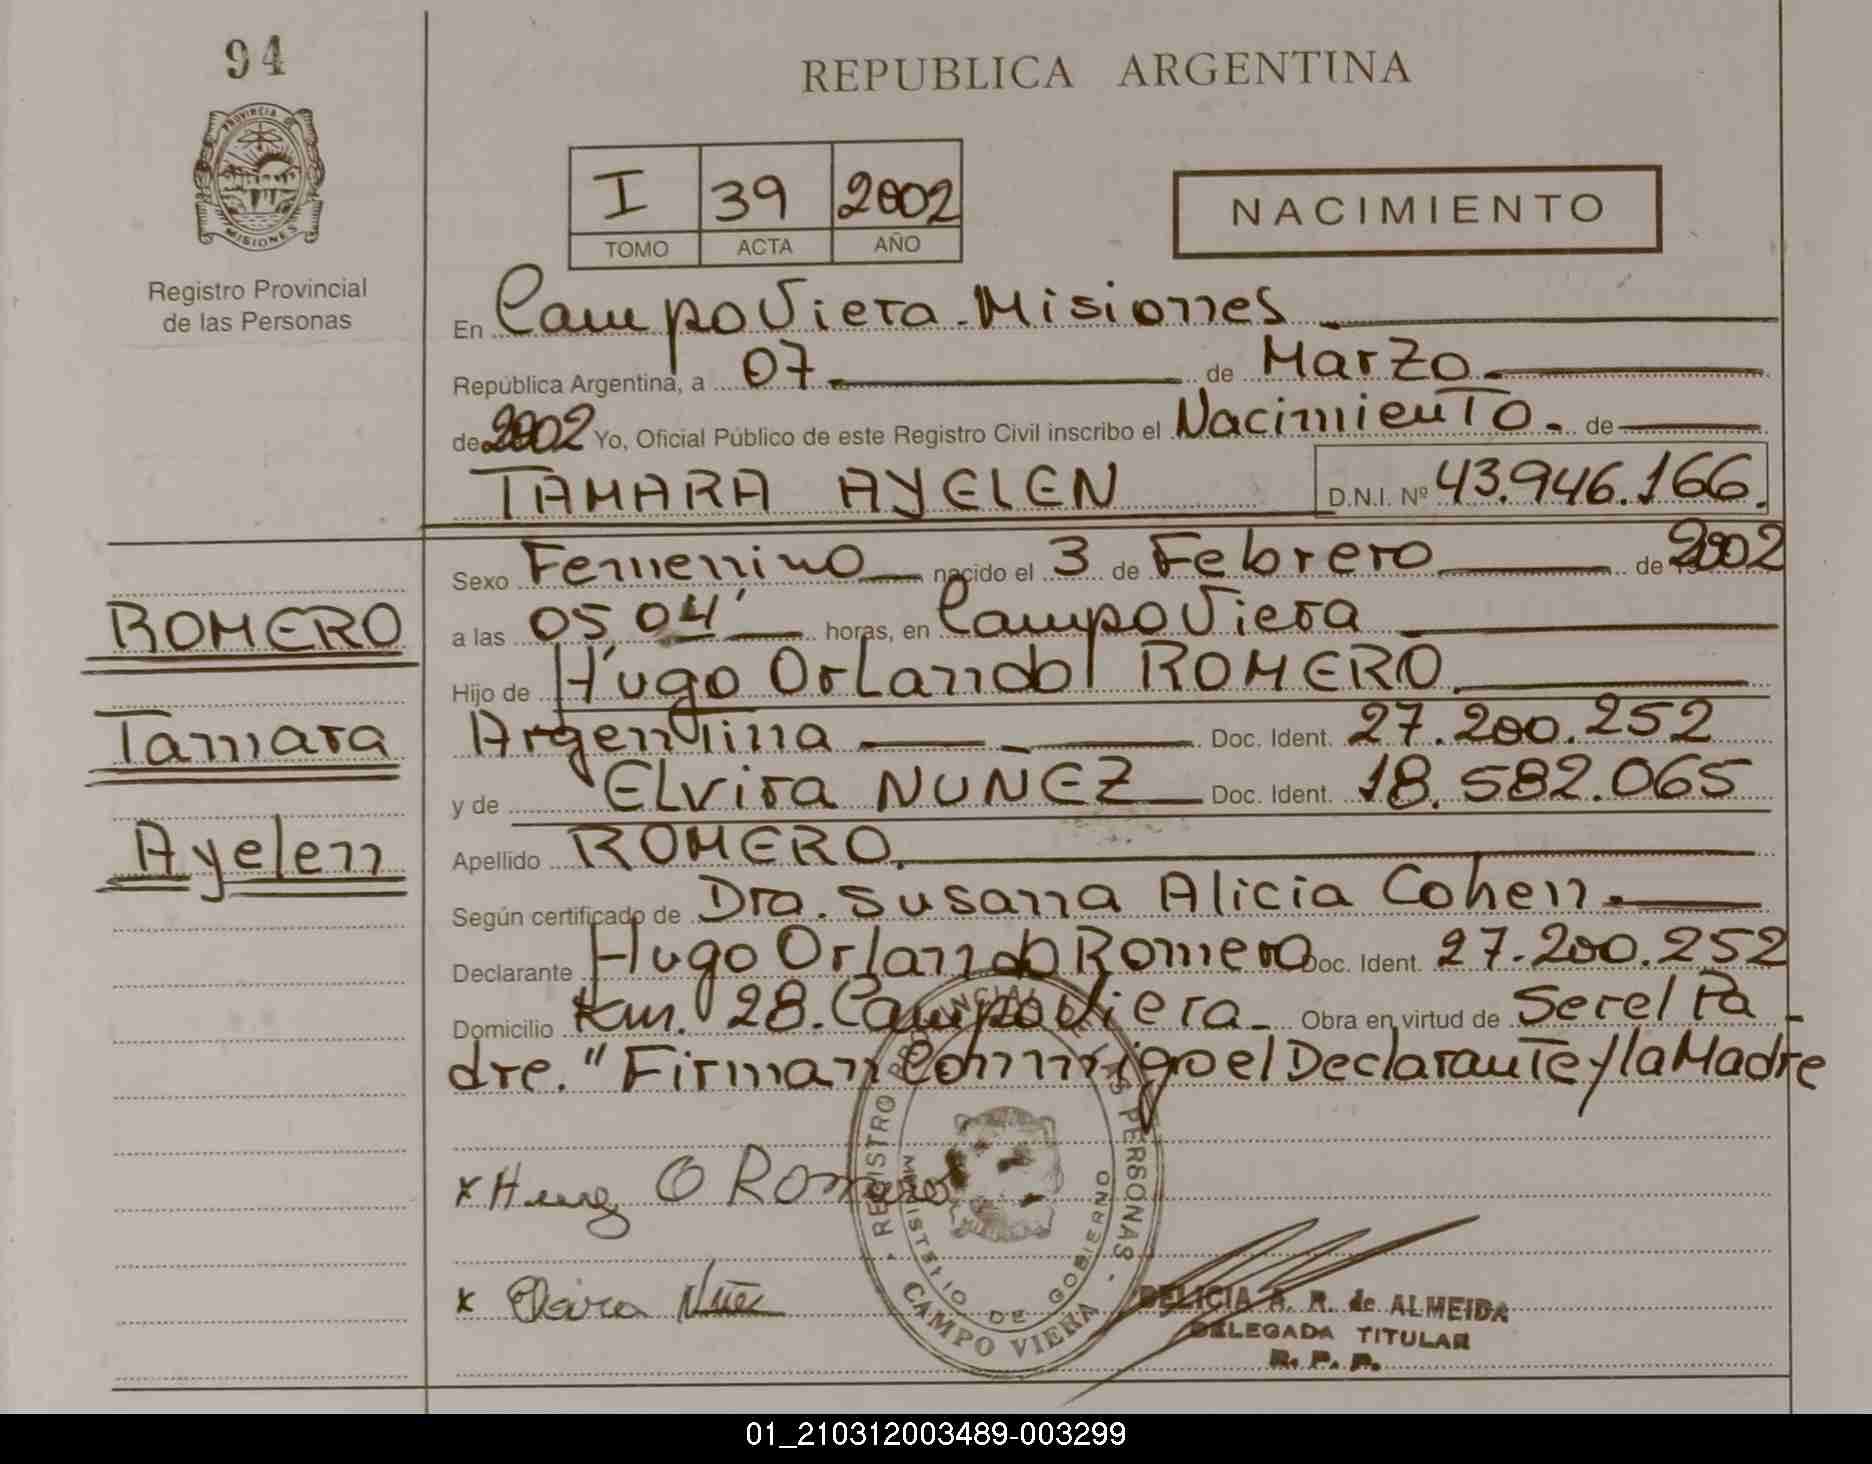 94
PROVINCIA DE
MISIONES
Registro Provincial
de las Personas
REPUBLICA ARGENTINA
I 39 2002
TOMO ACTA AÑO
NACIMIENTO
En Campo Viera - Misiones
República Argentina, a 07 de Marzo
de 2002 Yo, Oficial Público de este Registro Civil inscribo el Nacimiento. de
TAMARA AYELEN D.N.I. Nº 43.946.166.
Sexo Femenino nacido el 3 de Febrero de 2002
a las 05,04' horas, en Campo Viera
Hijo de Hugo Orlando ROMERO
Argentina Doc. Ident. 27.200.252
y de Elvira NUÑEZ Doc. Ident. 18.582.065
Apellido ROMERO.
Según certificado de Dra. Susana Alicia Cohen
Declarante Hugo Orlando Romero Doc. Ident. 27.200.252
Domicilio Km. 28. Campo Viera - Obra en virtud de Ser el Pa-
dre. "Firman Conmigo el Declarante y la Madre
ROMERO
Tamara
Ayelen
x Hug O Romero
x Elvira Nuñe
REGISTRO PROVINCIAL DE LAS PERSONAS
MINISTERIO DE GOBIERNO
CAMPO VIERA
DELICIA A. R. de ALMEIDA
DELEGADA TITULAR
R. P. P.
01_210312003489-003299